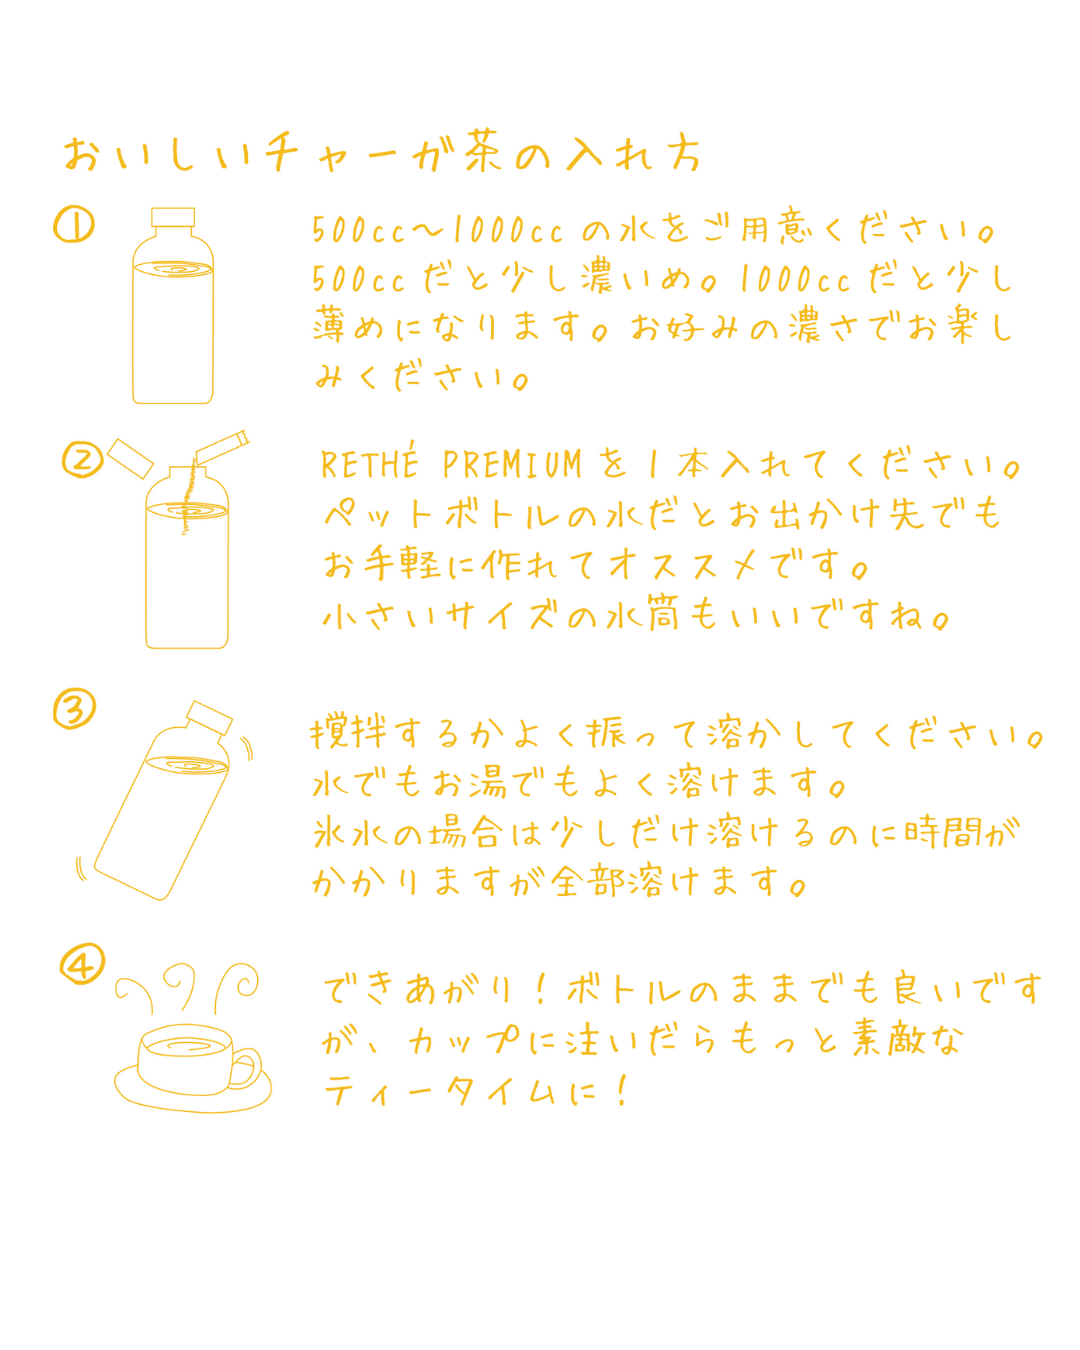 おいしいチャーガ茶の入れ方
①
500cc〜1000ccの水をご用意ください。
500ccだと少し濃いめ。1000ccだと少し
薄めになります。お好みの濃さでお楽し
みください。
②
RETHÉ PREMIUMを1本入れてください。
ペットボトルの水だとお出かけ先でも
お手軽に作れてオススメです。
小さいサイズの水筒もいいですね。
③
撹拌するかよく振って溶かしてください。
水でもお湯でもよく溶けます。
氷水の場合は少しだけ溶けるのに時間が
かかりますが全部溶けます。
④
できあがり！ボトルのままでも良いです
が、カップに注いだらもっと素敵な
ティータイムに！